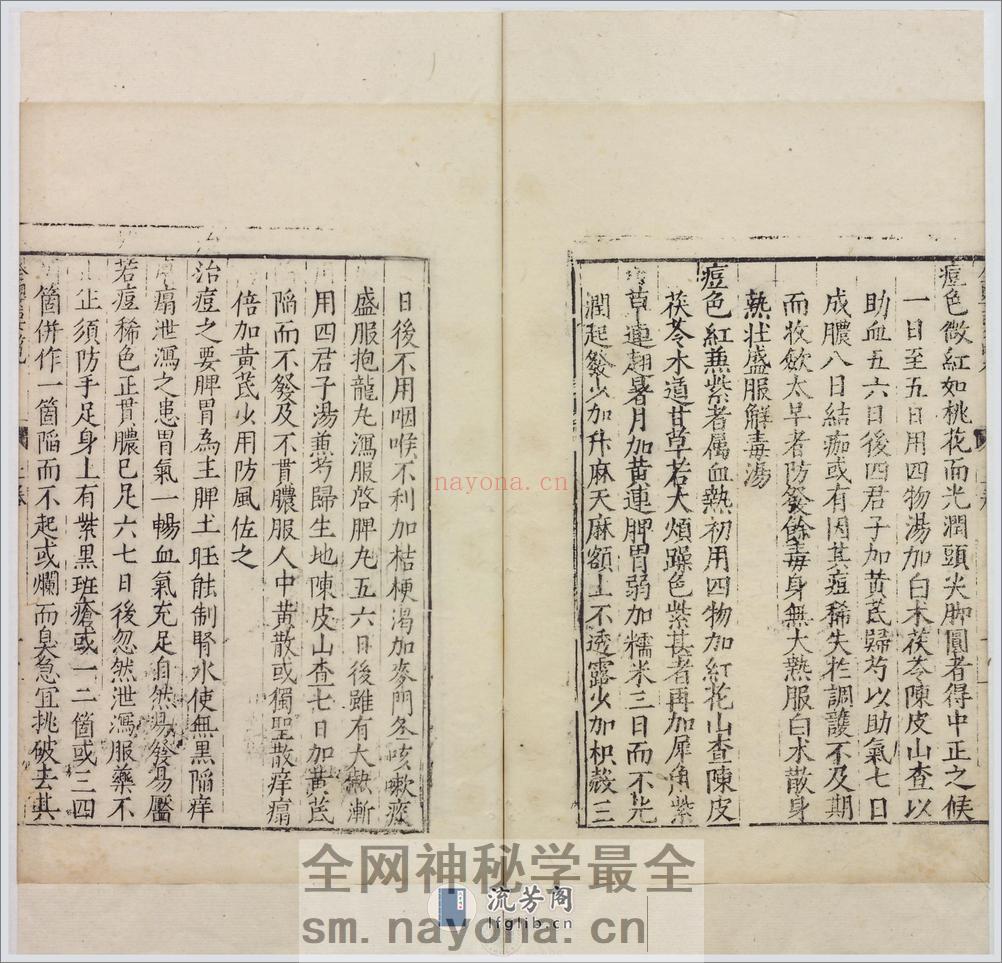 痘色微紅如桃花而光潤頭尖脚圓者得中正之候
一日至五日用四物湯加白术茯苓陳皮山查以
助血五六日後四君子加黃芪歸芍以助氣七日
成膿八日結痂或有因其痘稀失於調護不及期
而收歛太早者防發餘毒身無大熱服白术散身
熱状盛服解毒湯
痘色紅蕪紫者属血熱初用四物加紅花山查陳皮
茯苓木通甘草若大煩躁色紫甚者再加犀角紫
草連翹暑月加黃連脾胃弱加糯米三日而不光
潤起發少加升麻天麻額上不透露少加枳殼三
日後不用咽喉不利加桔梗渴加麥門冬咳嗽痰
盛服抱龍丸瀉服啓脾丸五六日後雖有大熱漸
用四君子湯蕪芎歸生地陳皮山查七日加黃芪
陥而不發及不貫膿服人中黃散或獨聖散痒瘍
倍加黃芪少用防風佐之
治痘之要脾胃為主脾土旺能制腎水使無黑陥痒
瘍泄瀉之患胃氣一暢血氣充足自然易發易靨
若痘稀色正貫膿已足六七日後忽然泄瀉服藥不
止須防手足身上有紫黑班瘡或一二箇或三四
箇併作一箇陥而不起或爛而臭急宜挑破去其
nayona.cn
全网神秘学最全
流芳阁
lfglib.cn
sm.nayona.cn